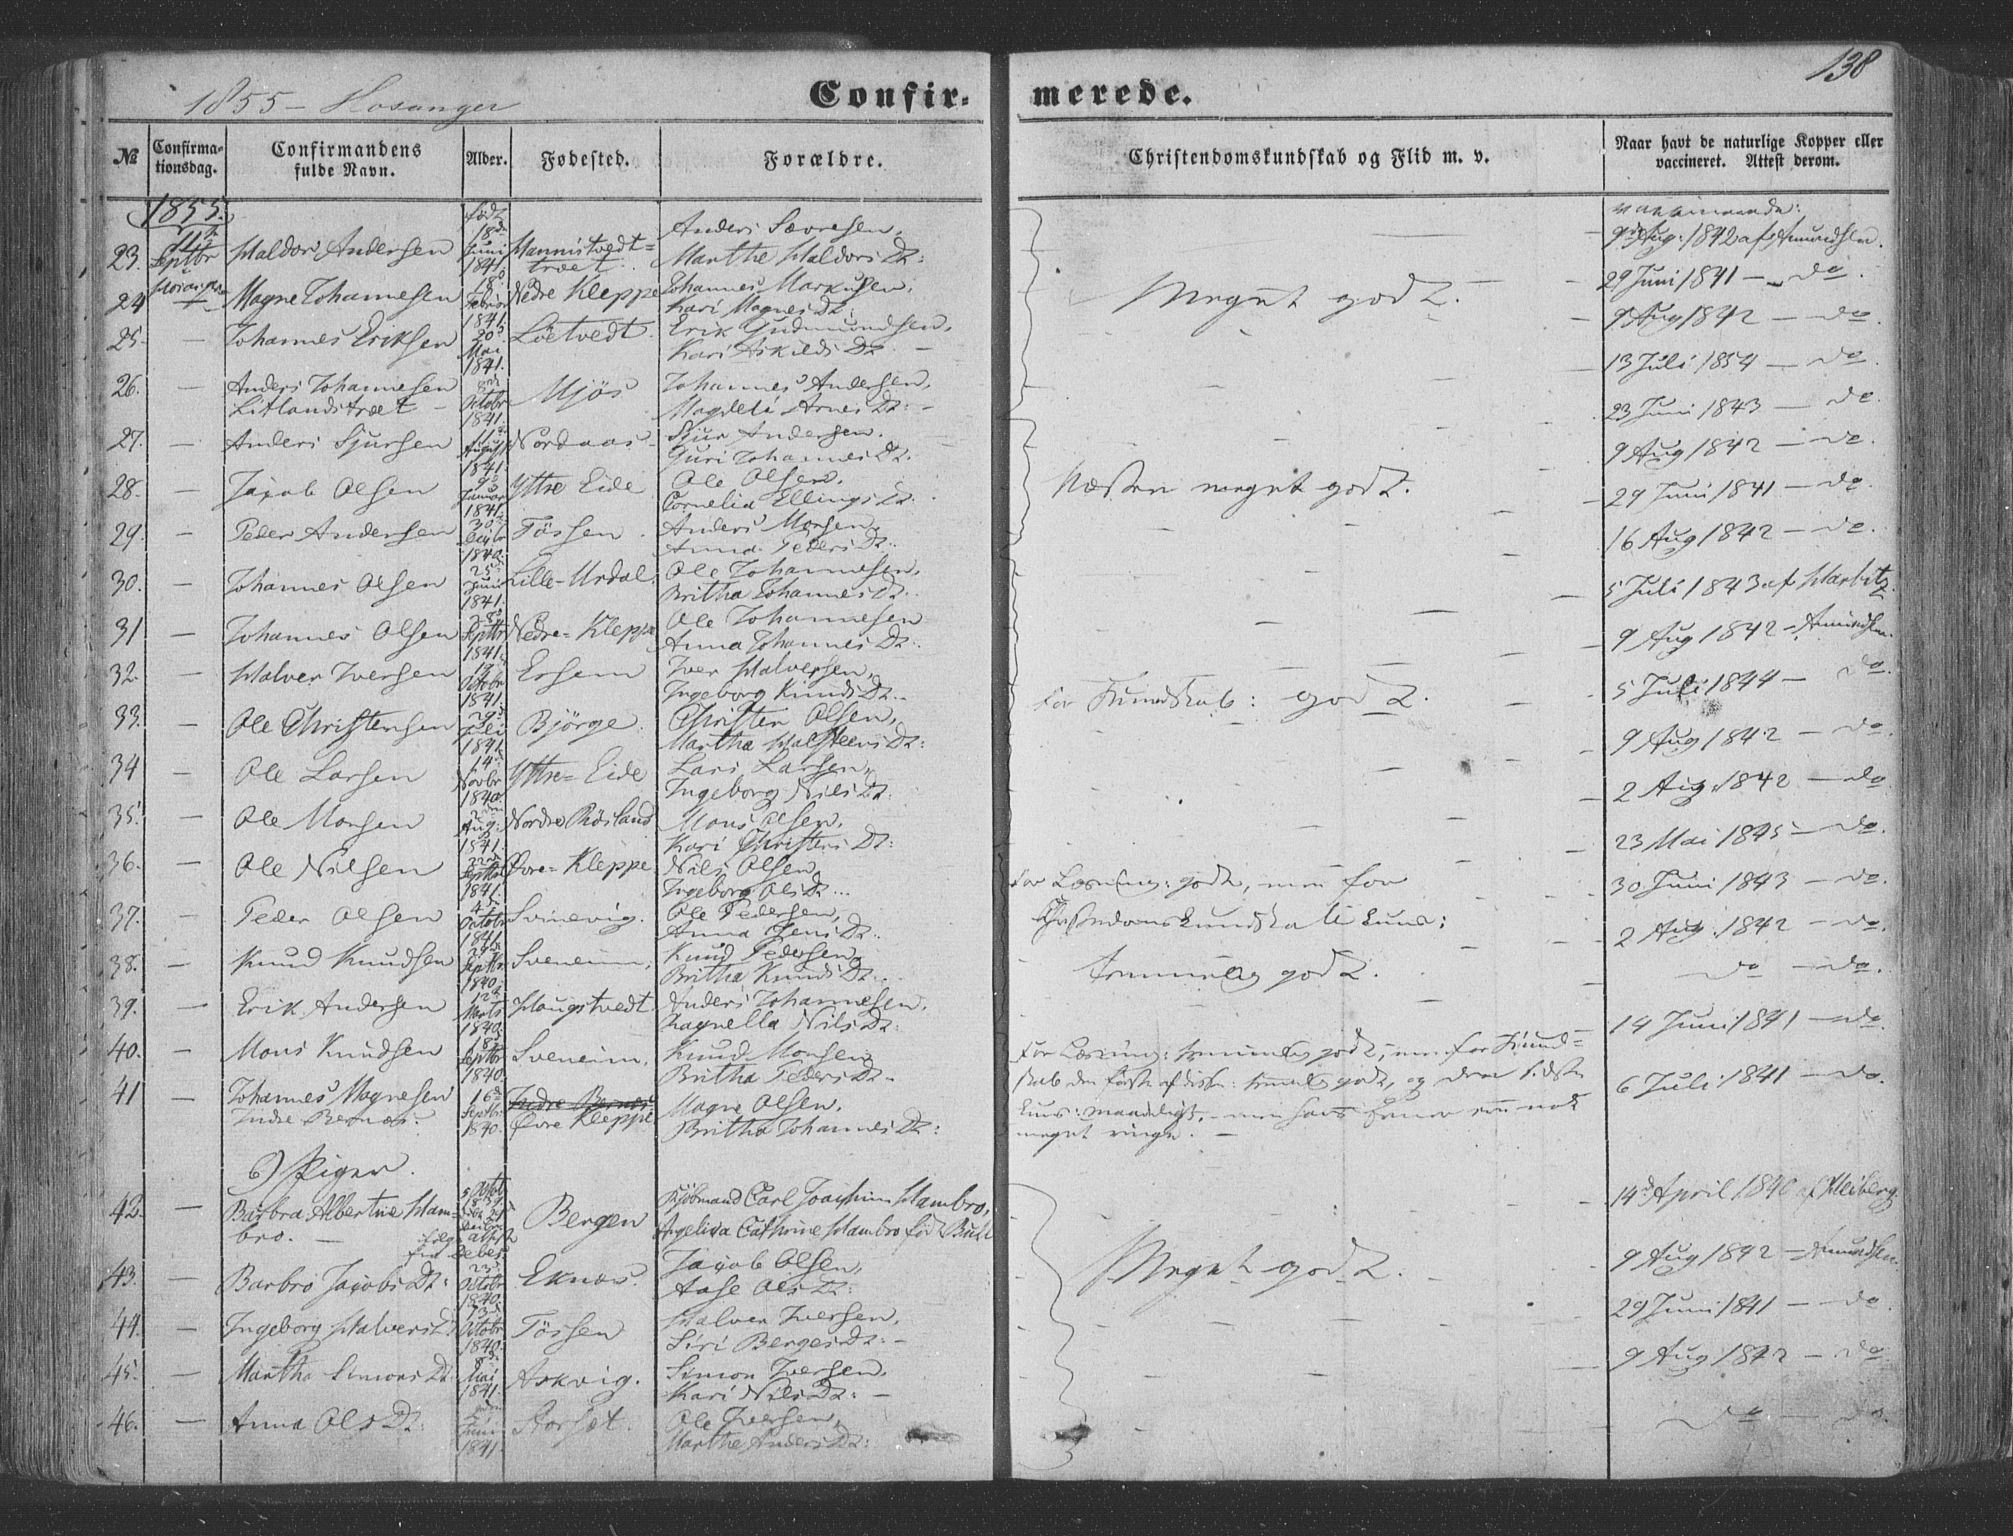 138
1855 - Hosanger
Confir-
merede.
№
Confirma-
tionsdag.
Confirmandens
fulde Navn.
Alder.
Fødested.
Forældre.
Christendomskundskab og Flid m. v.
Naar havt de naturlige Kopper eller
vaccineret. Attest derom.
1855.
født
23. Septbr Haldor Andersen 18d Juni 1841 Mannistvedt= træet. Anders Sævresen, Marthe Haldors Dt: 9de Aug: 1842 af Amundsen.
24 Magne Johannesen Februar 1841 Nedre Kleppe Johannes Markusen, Kari Magnes Dt: Meget godt. 29 Juni 1841 — do.
25. — Johannes Eriksen 20d Mai 1841. Löetvedt. Erik Gudmundsen, Kari Askilds Dt. 9 Aug 1842 — do.
26. — Anders Johannesen Litlandstræet — 8de Octobr 1841. Mjös Johannes Andersen, Magdeli Arnes Dt: 13 Juli 1854 — do.
27. — Anders Sjursen 11te August 1841. Nordaas Sjur Andersen. Guri Johannes Dt. 23 Juni 1843 — do.
28. — Jacob Olsen 9d Januar 1841. Yttre Eide Ole Olsen, Cornelia Ellings Dt. Næsten meget godt. 9 Aug 1842 — do.
29. — Peder Andersen 30te 1840. Tössen. Anders Monsen, Anna Peders Dt. 29 Juni 1841 — do.
30. — Johannes Olsen 25d Juni 1841. Lille-Urdal. Ole Johannesen, Britha Johannes Dt. 16 Aug 1842 — do.
31 — Johannes Olsen Septbr 1841. Nedre-Kleppe Ole Johannesen Anna Johannes Dt. 5 Juli 1843 af Harbitz
32. — Halver Iversen Octobr 1841. Essem Iver Halversen, Ingeborg Knuds Dt. For Kundskab: godt. 9 Aug 1842 — Amundsen.
33. — Ole Christensen 29d Juli 1841. Björge. Christen Olsen, Martha Halsteens Dt: 5 Juli 1844 — do.
34 — Ole Larsen 14de Novbr 1840. Yttre=Eide Lars Larsen, Ingeborg Nils Dt. 9 Aug 1842 — do.
35. — Ole Monsen 2den Aug: 1841. Nordre Rösland Mons Olsen, Kari Christens Dt: 2 Aug: 1842 — do.
36. — Ole Nilsen 22de Septbr 1841. Övre-Kleppe Nils Olsen, Ingeborg Ols Dt... For Læsning: godt, men for 23 Mai 1845 — do.
37. — Peder Olsen 4d Octobr 1841. Svinevig. Ole Pedersen, Anna Jens Dt. Christendomskundskab kuns: 30 Juni 1843 — do.
38. — Knud Knudsen Septbr. 1840. Sveneim. Knud Pedersen, Britha Knuds Dt. temmelig godt. 2 Aug: 1842 — do.
39. — Erik Andersen 12te Marts 1840. Haugstvedt Anders Johannesen, Ragnella Nils Dt: do — do.
40. — Mons Knudsen 18d Septbr 1840. Sveneim. Knud Monsen, Britha Peders Dt. For Læsning: temmelig godt, men for Kund= 14 Juni 1841 — do.
41 — Johannes Magnesen Indre Bernæs. 16d Septbr. 1840. Indre Bernæs Övre Kleppe Magne Olsen. Britha Johannes Dt: 6 Juli 1841 — do.
skab den første af disse: temmelig godt, og den sidste
kuns: maadeligt, — men hans Evner ere nok
meget ringe. —
b) Piger.
42. — Barbra Albertine Ham= bro. — Bergen Kjöbmand Carl Joachim Hambro, Angelica Cathrine Hambro föd Bull 14d April 1840 af Heiberg.
43. — Barbro Jacobs Dt: 23d Octobr 1840. Eknæs. Jacob Olsen, Aase Ols Dt: Meget godt. 9 Aug 1842 — Amundsen.
44. — Ingeborg Halvers Dt Octobr 1840. Tössen Halver Iversen, Siri Berges Dt: — 29 Juni 1841 — do
45. — Martha Simons Dt. 8d Mai 1841. Askvig. Simon Iversen, Kari Nils Dt: — 9 Aug 1842 — do.
46. — Anna Ols Dt. Juni 1841 Storset. Ole Iversen, Marthe Anders Dt: do — do.